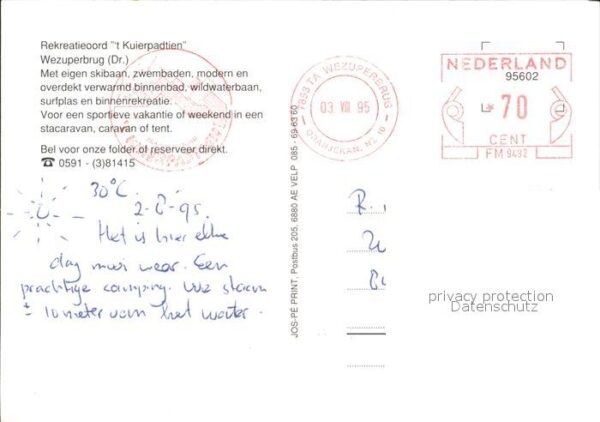 Rekreatieoord "'t Kuierpadtien"
Wezuperbrug (Dr.)
Met eigen skibaan, zwembaden, modern en
overdekt verwarmd binnenbad, wildwaterbaan,
surfplas en binnenrekreatie.
Voor een sportieve vakantie of weekend in een
stacaravan, caravan of tent.
Bel voor onze folder of reserveer direkt.
☎ 0591 - (3)81415
30°C.
2-8-95.
Het is hier elke
dag mooi weer. Een
prachtige camping. We staan
± 10 meter van het water.
JOS-PÉ PRINT, Postbus 205, 6880 AE VELP 085 - 69 63 60
7853 TA WEZUPERBRUG
03 VIII 95
ORANJEKAN. NZ 10
NEDERLAND
95602
70
CENT
FM 9492
R.
privacy protection
Datenschutz